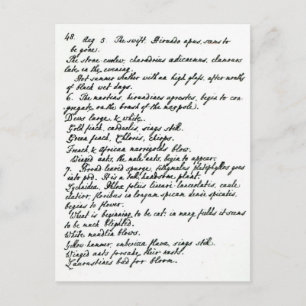 48. Aug 5. The swift, Hirundo apus, seems to
be gone.
The stone curlew, charadrius oedicnemus, clamours
late in the evening.
Hot summer weather with an high glass, after months
of black wet days.
6. The martins, hirundines agrestes, begin to con-
gregate on the of the maypole.
Dews large, & white.
Goldfinch, carduelis, sings still.
Green finch, Chloris, chirps.
French & African marrigolds blow.
Winged ants, the male ants, begin to appear.
7. Broad leaved spurge, tithymalus platyphyllos goes
into pod. It is a tall, handsome, plant.
Lychnidea, Phlox foliis lineari lanceolatis, caule
elatior, floribus in longam, spicam dense spicatis,
begins to flower.
What is beginning to be cut: in many fields it seems
to be much blighted.
White mullein blows.
Yellow hammer, emberiza flava, sings still.
Winged ants forsake, their nests.
Laurustines bud for bloom.